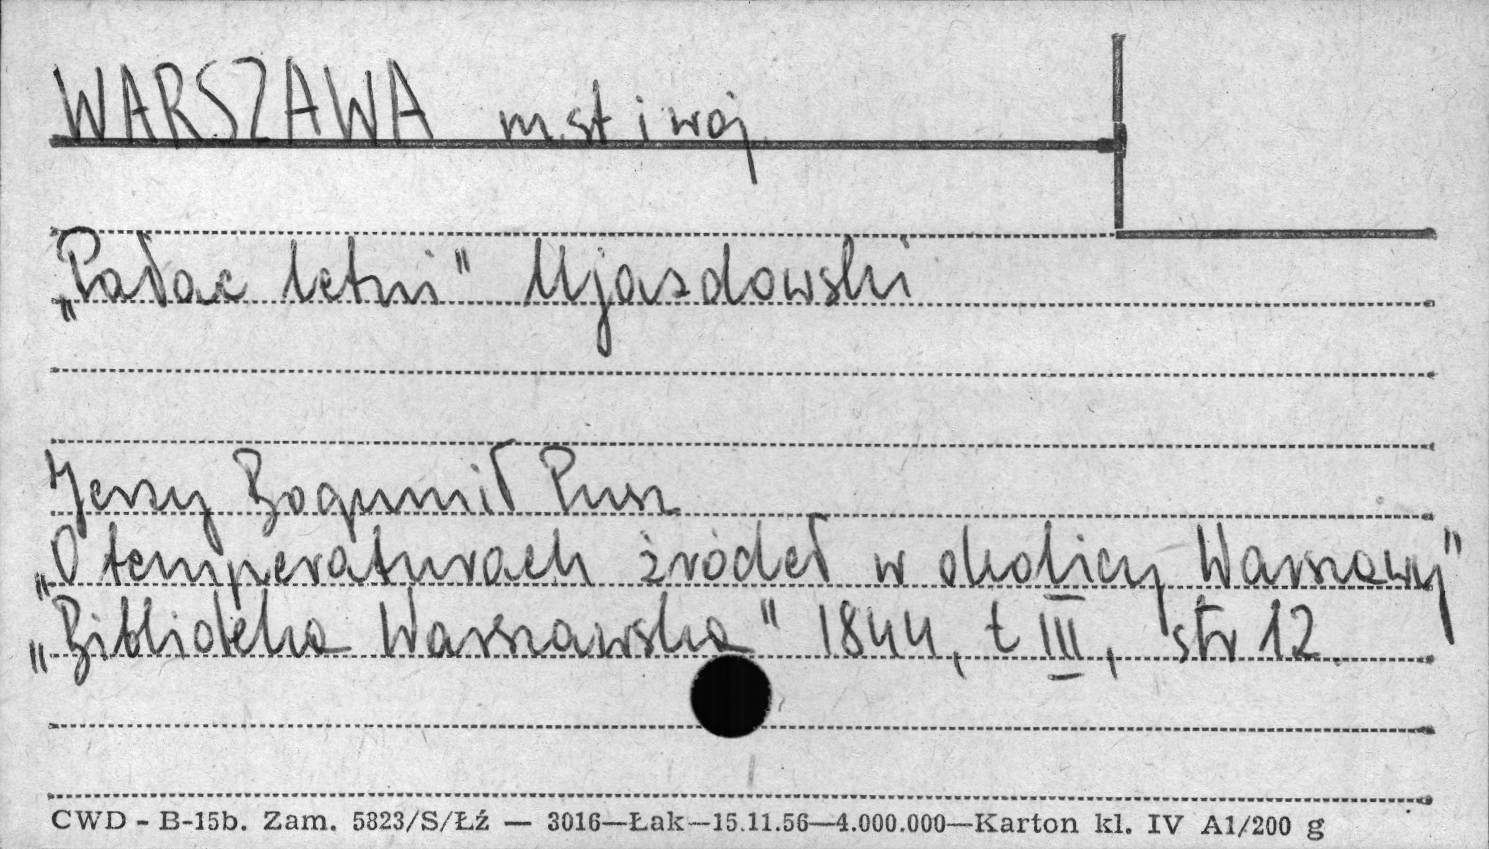 WARSZAWA m.st i woj.
„Pałac letni" Ujazdowski
Jerzy Bogumił Pusz
„O temperaturach źródeł w okolicy Warszawy"
„Biblioteka Warszawska" 1844, t III, str 12.
CWD - B-15b. Zam. 5823/S/Łź — 3016—Łak—15.11.56—4.000.000—Karton kl. IV A1/200 g